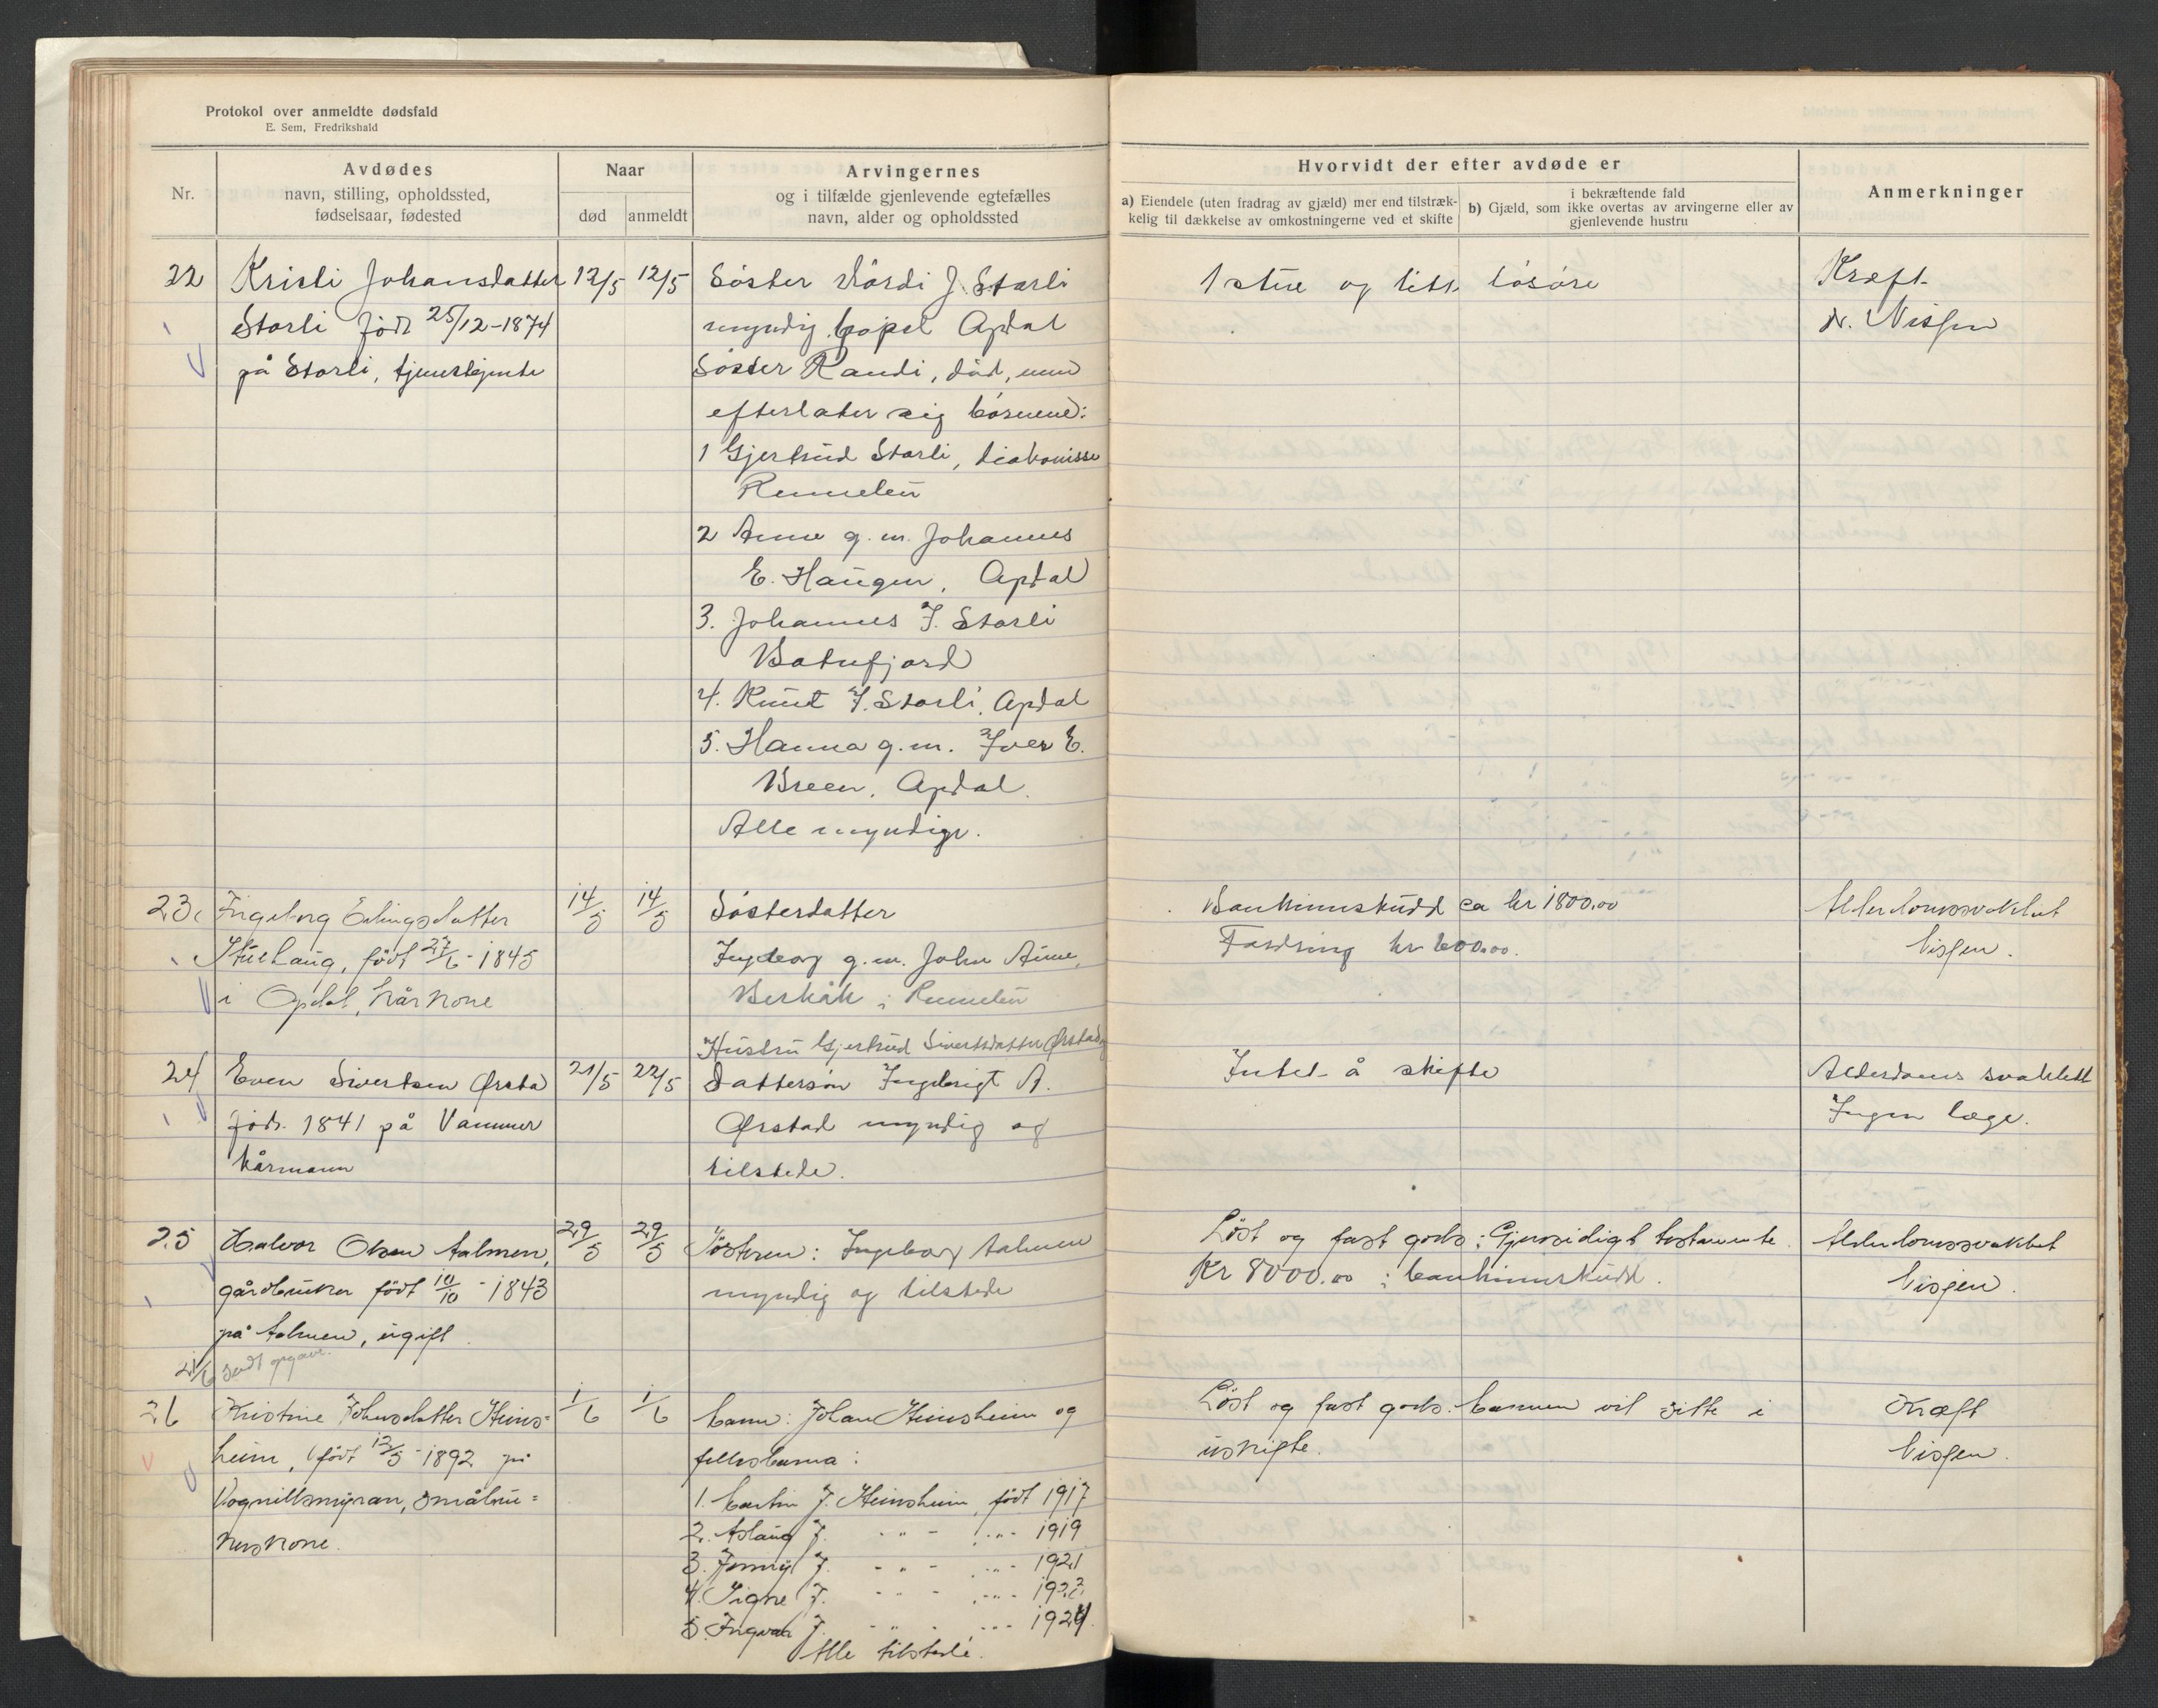 Protokol over anmeldte dødsfald
E. Sem, Fredrikshald
Nr.
Avdødes
navn, stilling, opholdssted,
fødselsaar, fødested
Naar
død
anmeldt
Arvingernes
og i tilfælde gjenlevende egtefælles
navn, alder og opholdssted
Hvorvidt der efter avdøde er
a) Eiendele (uten fradrag av gjæld) mer end tilstræk-
kelig til dækkelse av omkostningerne ved et skifte
i bekræftende fald
b) Gjæld, som ikke overtas av arvingerne eller av
gjenlevende hustru
Anmerkninger
22
Kristi Johansdatter
Storli født 25/12-1874
på Storli, tjenestejente
12/5
12/5
Søster Mårdi J. Storli
myndig bopel Opdal
Søster Randi, død, men
efterlater sig børnene:
1 Gjertrud Storli, diakonisse
Rennebu
2 Anne g. m. Johannes
E. Haugen, Opdal
3. Johannes J. Storli
Batnfjord
4. Knut J. Storli, Opdal
5. Hanna g. m. Iver E.
Breen, Opdal.
Alle myndige.
1 stue og litt løsøre
Kræft
dr. Nissen
23
Ingeborg Erlingsdatter
Stuehaug, født 27/6-1845
i Opdal, kårkone
14/5
14/5
Søsterdatter
Ingeborg g. m. John Aune,
Berkåk i Rennebu
Bankinnskudd ca kr 1800.00
Fordring kr 600.00.
Alderdomssvakhet
Nissen.
24
Even Sivertsen Ørsta
født 1841 på Vammer
kårmann
21/5
22/5
Hustru Gjertrud Sivertsdatter Ørstad og
Dattersøn Ingebrigt A.
Ørstad myndig og
tilstede.
Intet å skifte
Alderdoms svakhett
Ingen læge.
25
Halvor Olsen Aalmen,
gårdbruker født 10/10-1843
på Aalmen, ugift.
21/6 sendt opgave.
29/5
29/5
Søsteren: Ingeborg Aalmen
myndig og tilstede
Løst og fast gods: Gjensidigt testamente.
Kr 8000.00 i bankinnskudd.
Alderdomssvakhet
Nissen.
26
Kristine Johnsdatter Heims=
heim, født 12/5-1892 på
Vognillsmyran, småbru=
kerskone.
1/6
1/6
Mann: Johan Heimsheim og
fellesbarna:
1. Martin J. Heimsheim, født 1917
2. Aslaug J. - " - - " - 1919
3. Jenny J. - " - - " - 1921
4. Signe J. - " - - " - 1922
5. Ingvar J. - " - - " - 1924.
Alle tilstede.
Løst og fast gods. Mannen vil sitte i
uskifte.
Kræft
Nissen.